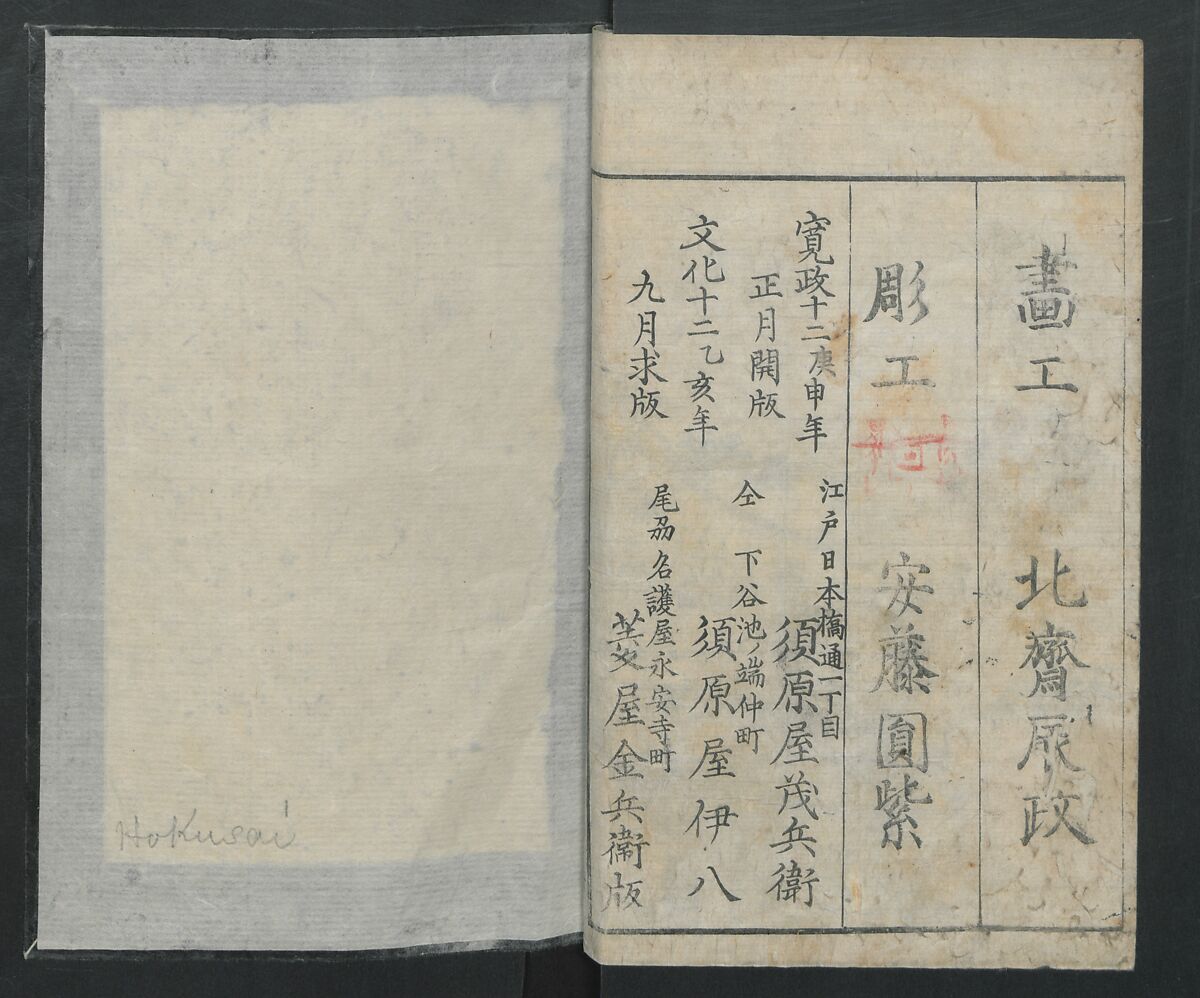 畫工 北齋辰政
彫工 安藤圓紫
寛政十二庚申年
正月開版
文化十二乙亥年
九月求版
江戸日本橋通一丁目
須原屋茂兵衛
仝 下谷池ノ端仲町
須原屋伊八
尾刕名護屋永安寺町
美屋金兵衛版
Hokusai